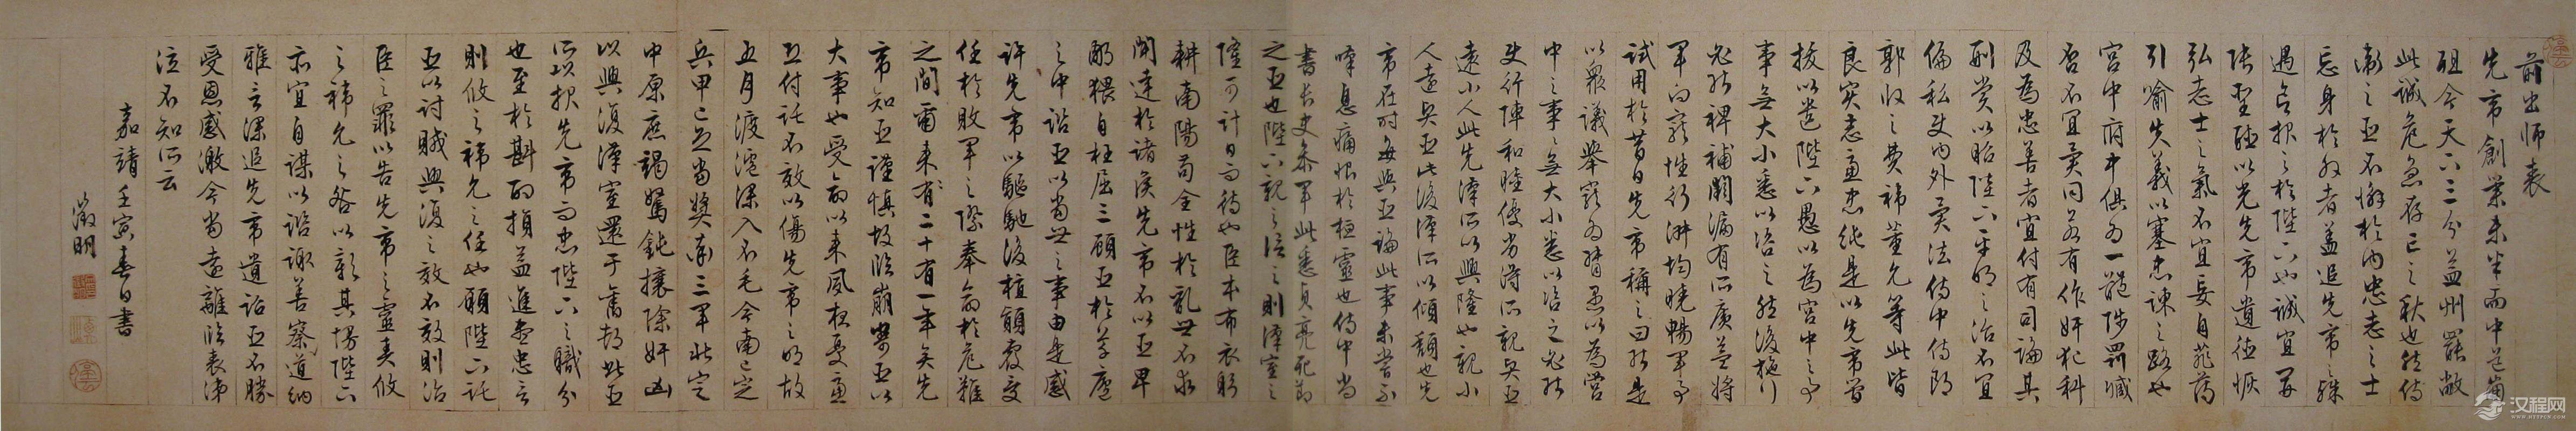 前出师表
先帝創業未半而中道崩
殂今天下三分益州罷敝
此誠危急存亡之秋也然侍
衞之臣不懈於內忠志之士
忘身於外者蓋追先帝之殊
遇欲報之於陛下也誠宜開
張聖聽以光先帝遺德恢
弘志士之氣不宜妄自菲薄
引喻失義以塞忠諫之路也
宮中府中俱為一體陟罰臧
否不宜異同若有作奸犯科
及為忠善者宜付有司論其
刑賞以昭陛下平明之治不宜
偏私使內外異法侍中侍郎
郭攸之費禕董允等此皆
良實志慮忠純是以先帝簡
拔以遺陛下愚以為宮中之事
事無大小悉以咨之然後施行
必能裨補闕漏有所廣益將
軍向寵性行淑均曉暢軍事
試用於昔日先帝稱之曰能是
以眾議舉寵為督愚以為營
中之事事無大小悉以咨之必能
使行陣和睦優劣得所親賢臣
遠小人此先漢所以興隆也親小
人遠賢臣此後漢所以傾頹也先
帝在時每與臣論此事未嘗不
嘆息痛恨於桓靈也侍中尚
書長史參軍此悉貞亮死節
之臣也陛下親之信之則漢室之
隆可計日而待也臣本布衣躬
耕南陽苟全性於亂世不求
聞達於諸侯先帝不以臣卑
鄙猥自枉屈三顧臣於草廬
之中諮臣以當世之事由是感
許先帝以驅馳後值傾覆受
任於敗軍之際奉命於危難
之間爾來有二十有一年矣先
帝知臣謹慎故臨崩寄臣以
大事也受命以來夙夜憂慮
恐付託不效以傷先帝之明故
五月渡瀘深入不毛今南已定
兵甲已足當獎率三軍北定
中原庶竭駑鈍攘除奸凶
以興復漢室還于舊都此臣
所以報先帝而忠陛下之職分
也至於斟酌損益進盡忠言
則攸之禕允之任也願陛下託
臣以討賊興復之效不效則治
臣之罪以告先帝之靈責攸
之禕允之咎以彰其慢陛下
亦宜自謀以諮諏善察道納
雅言深追先帝遺詔臣不勝
受恩感激今當遠離臨表涕
泣不知所云
嘉靖壬寅春日書
徵明
汉程网
WWW.HTTPCN.COM